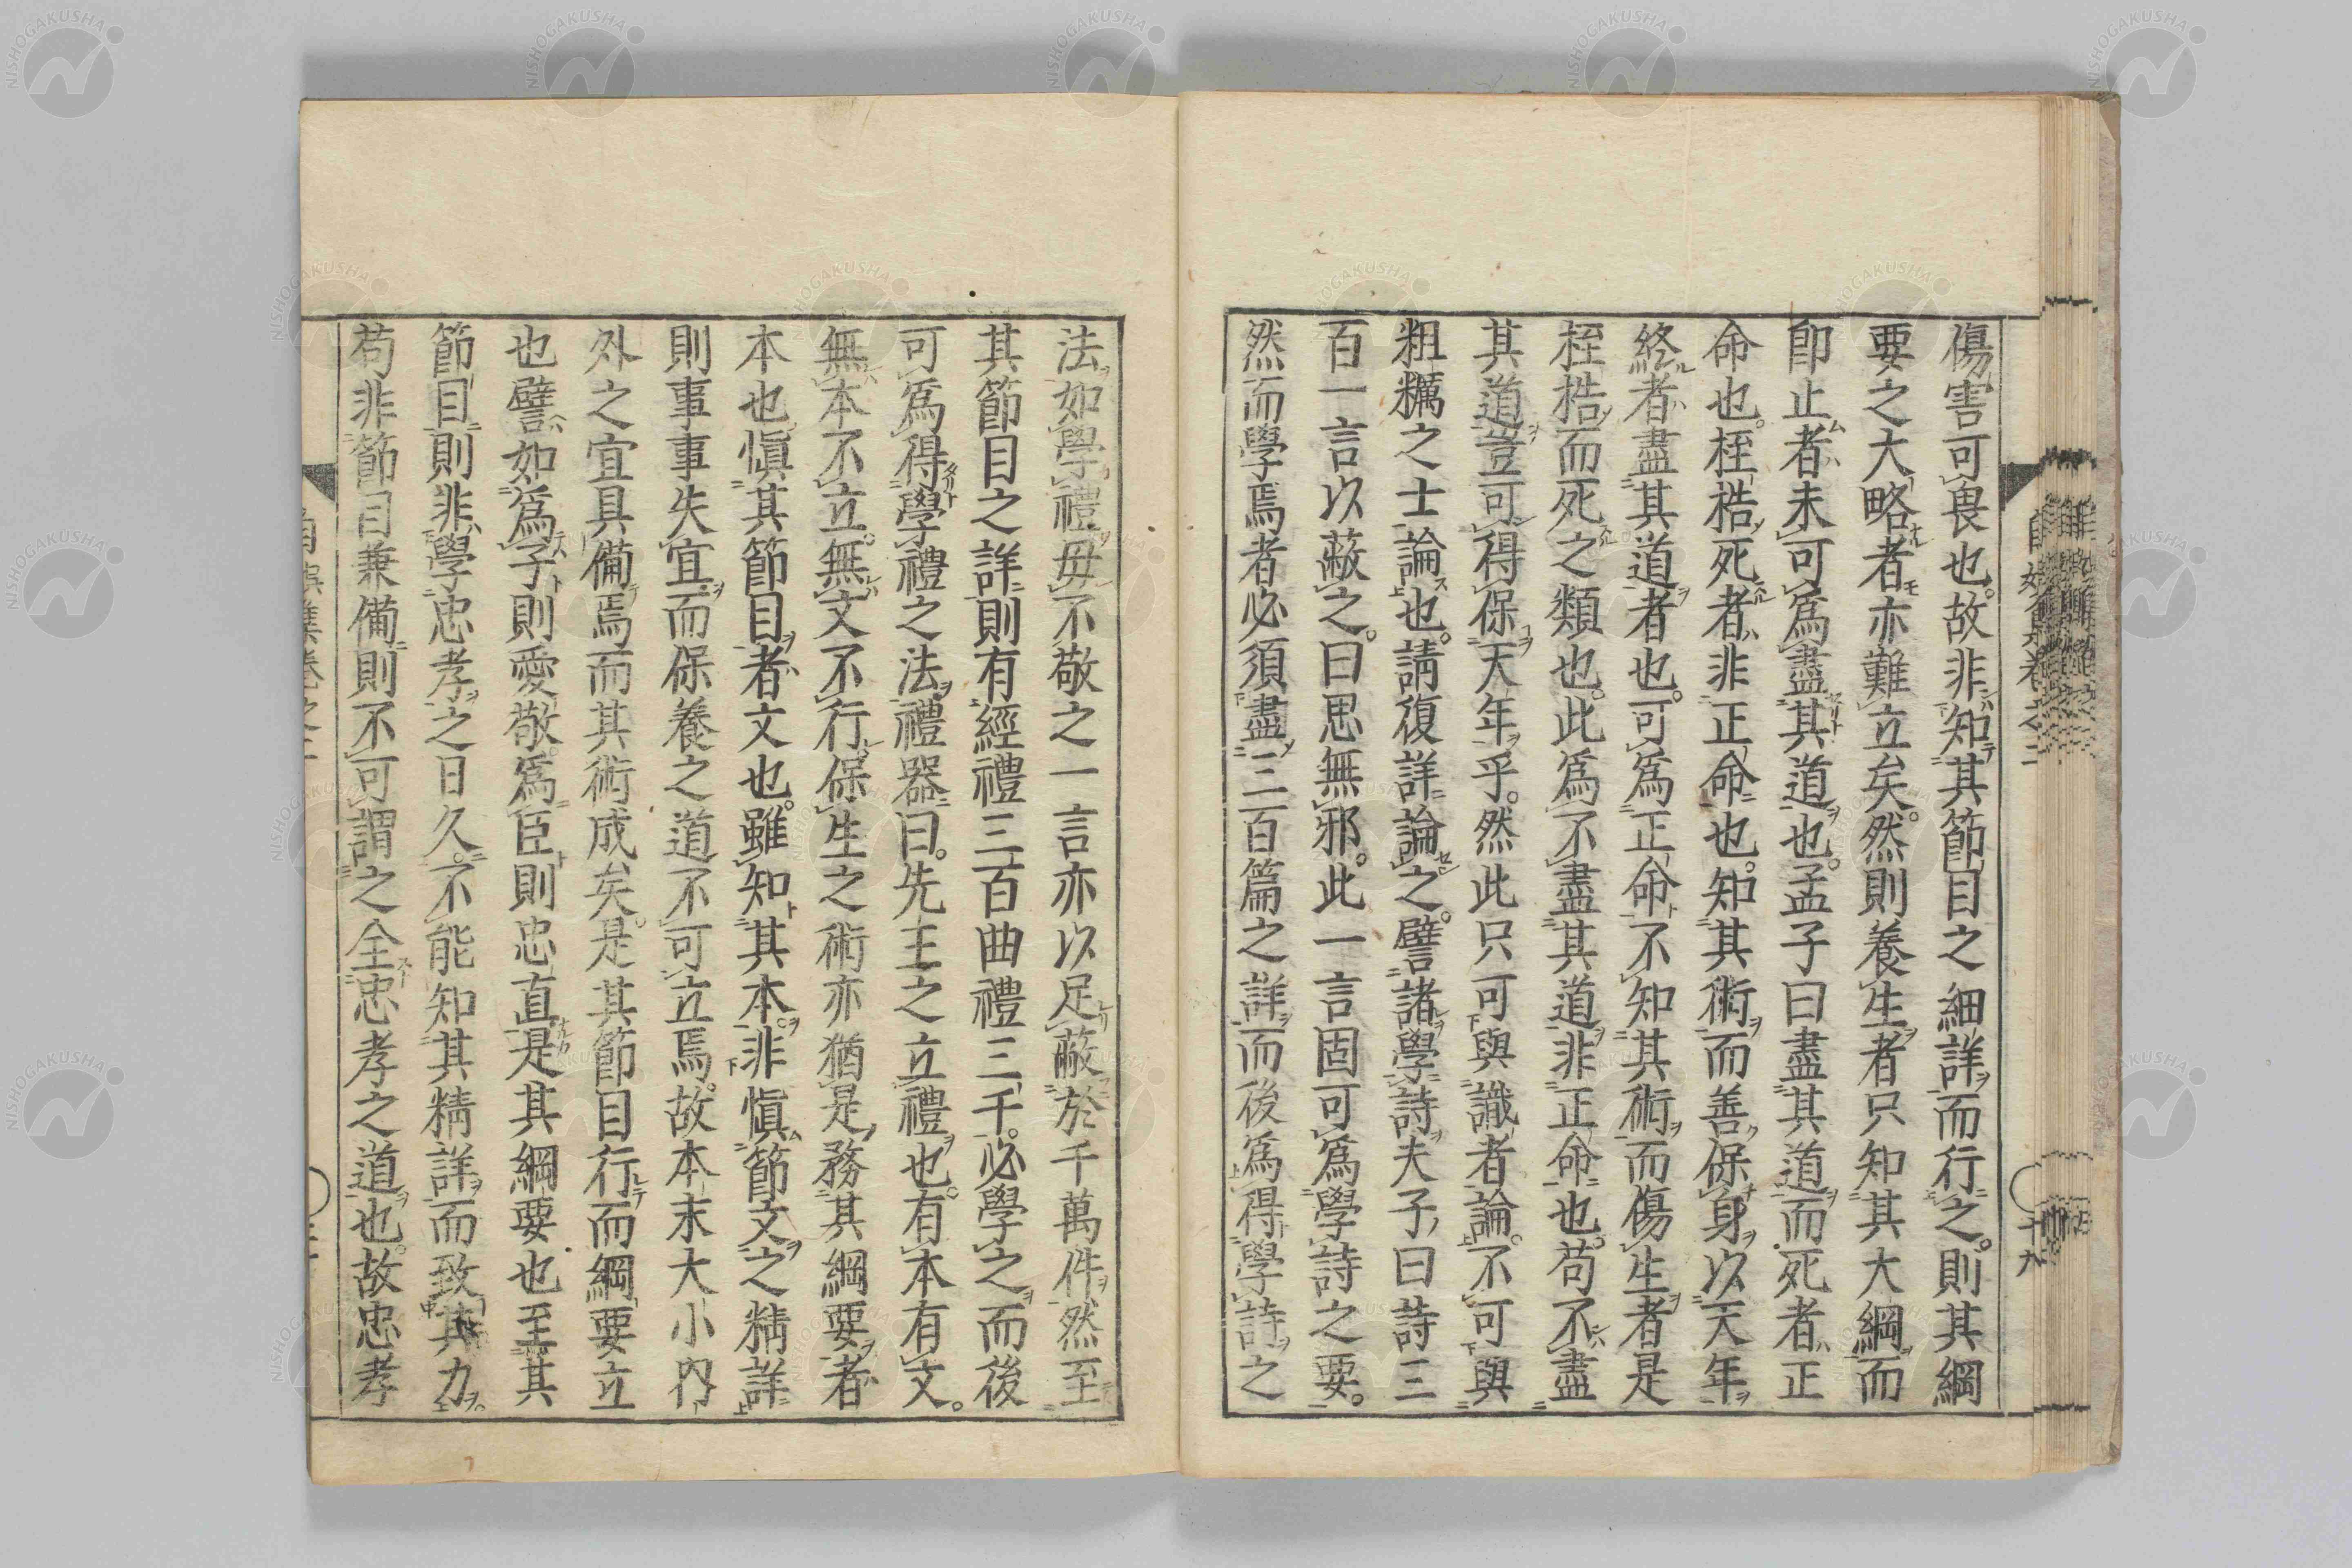 傷害可畏也故非知其節目之細詳而行之則其綱
要之大略者亦難立矣然則養生者只知其大綱而
即止者未可爲盡其道也孟子曰盡其道而死者正
命也桎梏死者非正命也知其術而善保身以天年
終者盡其道者也可爲正命不知其術而傷生者是
桎梏而死之類也此爲不盡其道非正命也苟不盡
其道豈可得保天年乎然此只可與識者論不可與
粗糲之士論也請復詳論之譬諸學詩夫子曰詩三
百一言以蔽之曰思無邪此一言固可爲學詩之要
然而學焉者必須盡三百篇之詳而後爲得學詩之
法如學禮毋不敬之一言亦以足蔽於千萬件然至
其節目之詳則有經禮三百曲禮三千必學之而後
可爲得學禮之法禮器曰先王之立禮也有本有文
無本不立無文不行保生之術亦猶是務其綱要者
本也愼其節目者文也雖知其本非愼節文之精詳
則事事失宜而保養之道不可立焉故本末大小內
外之宜具備焉而其術成矣是其節目行而綱要立
也譬如爲子則愛敬爲臣則忠直是其綱要也至其
節目則非學忠孝之日久不能知其精詳而致其力
苟非節目兼備則不可謂之全忠孝之道也故忠孝
十九
NISHOGAKUSHA